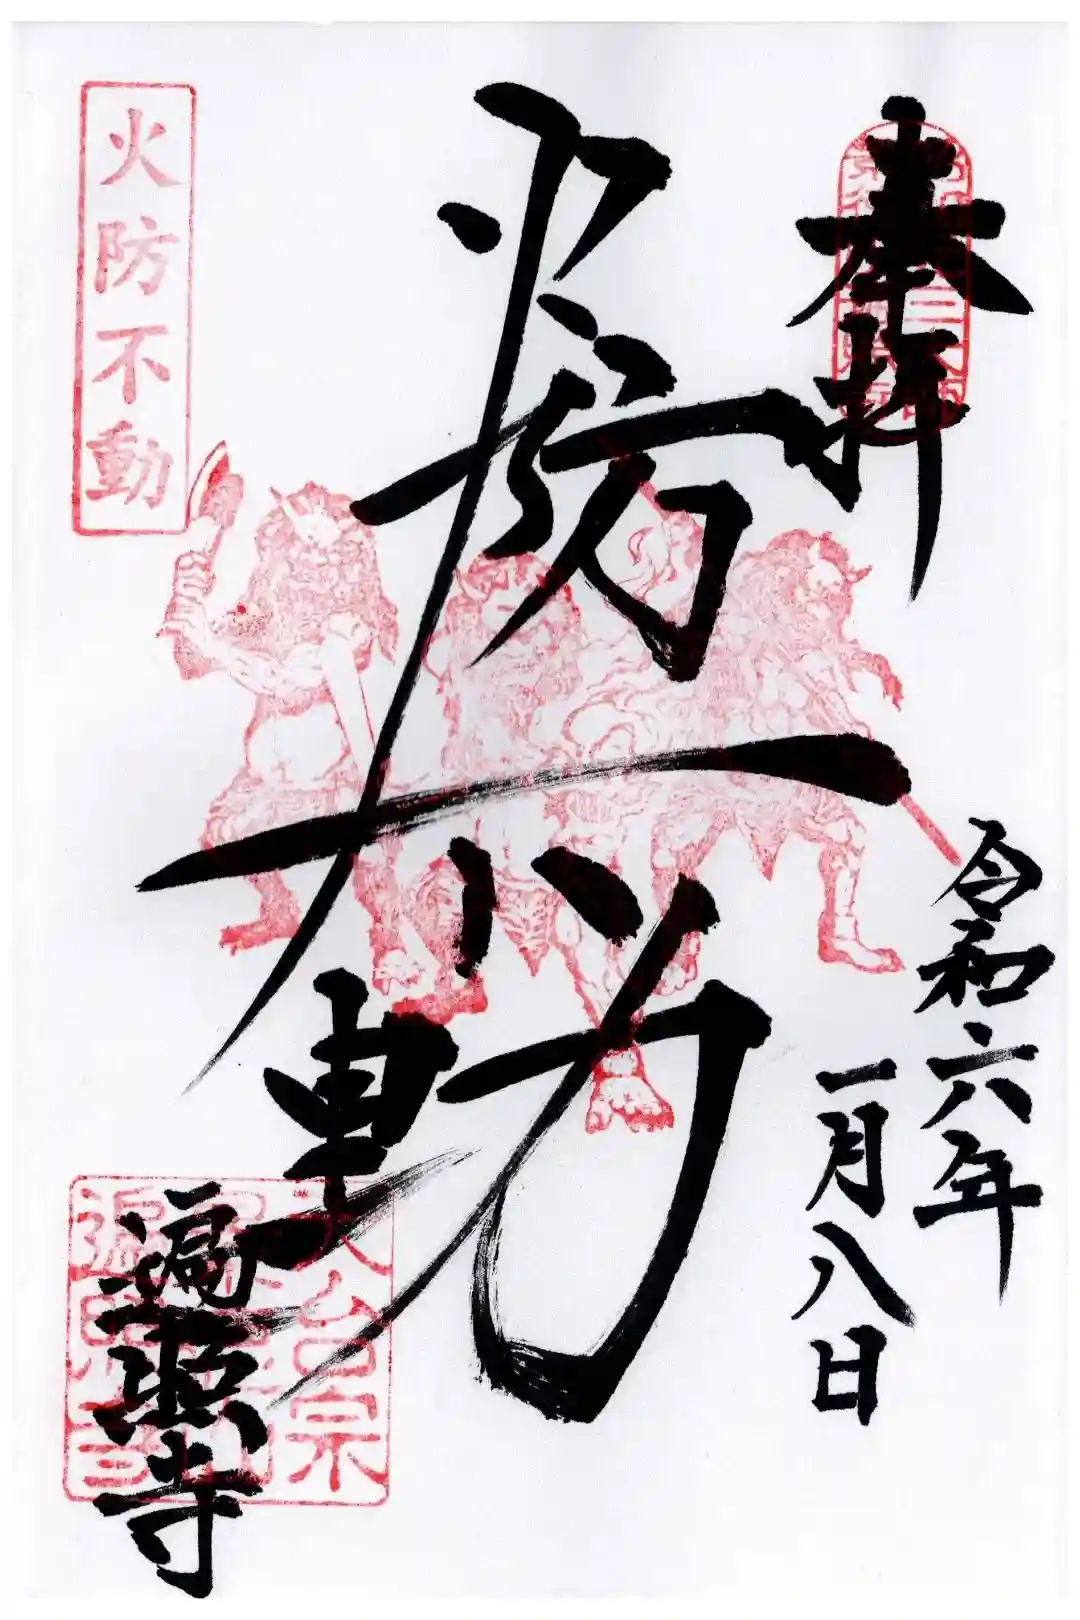 奉拝
令和六年
一月八日
火防不動
火防不動
遍照寺
天台宗